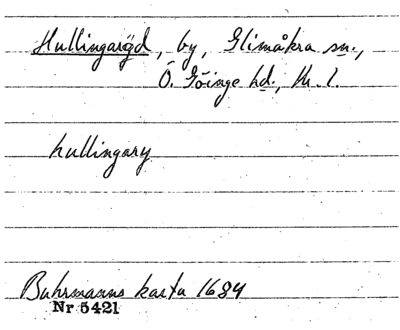 Hullingaröd, by, Glimåkra sn.,
Ö. Göinge hd., Kr. l.
hullingary
Buhrmanns karta 1684
Nr 5421